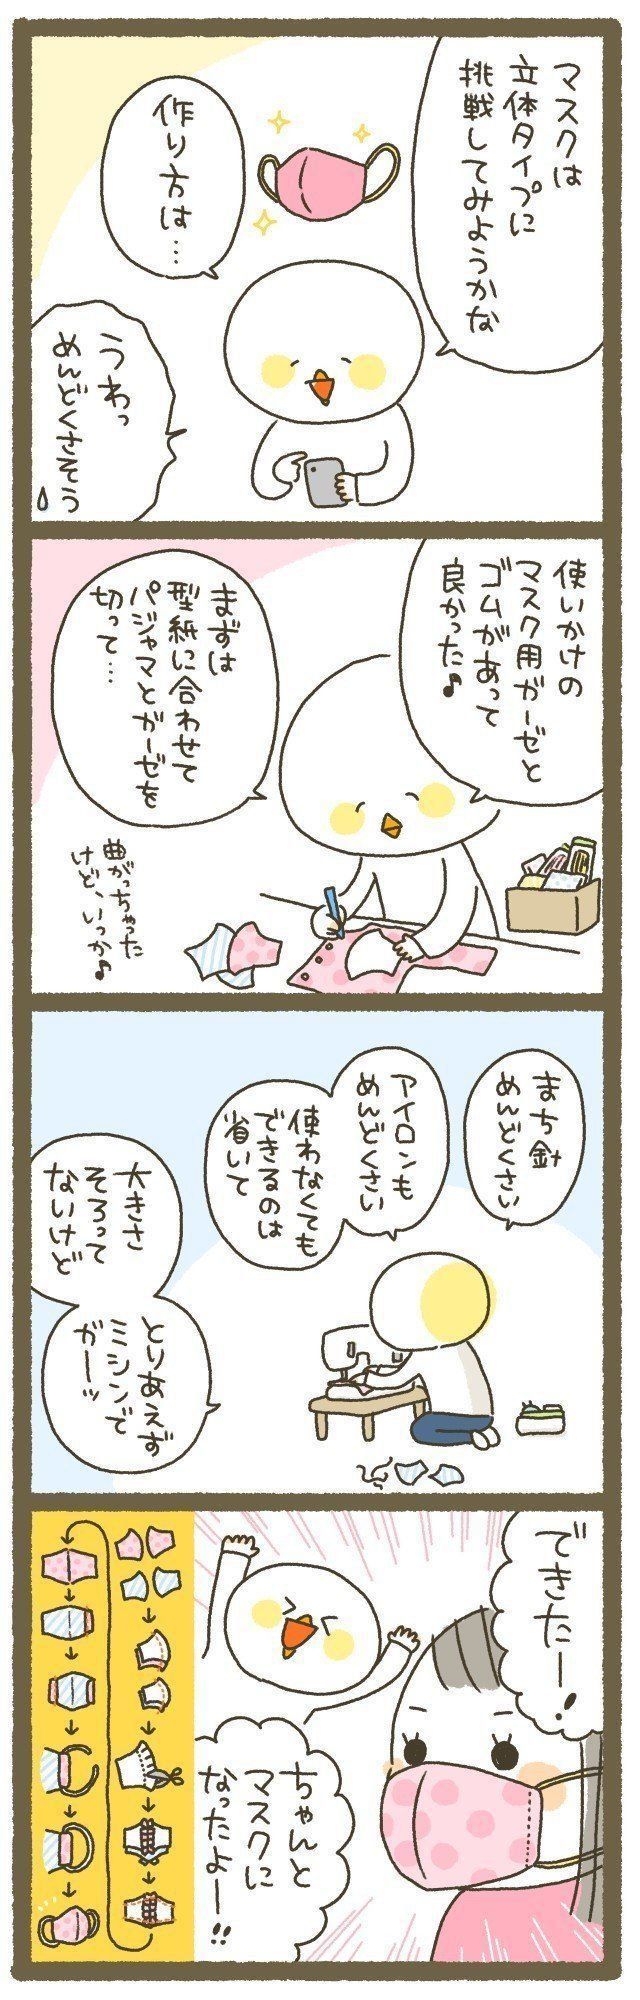 マスクは
立体タイプに
挑戦してみようかな
作り方は…
うわっ
めんどくさそう
使いかけの
マスク用ガーゼと
ゴムがあって
良かった♪
まずは
型紙に合わせて
パジャマとガーゼを
切って…
曲がっちゃった
けど、いっか♪
まち針
めんどくさい
アイロンも
めんどくさい
使わなくても
できるのは
省いて
大きさ
そろって
ないけど
とりあえず
ミシンで
ガーッ
できたー!
ちゃんと
マスクに
なったよー!!